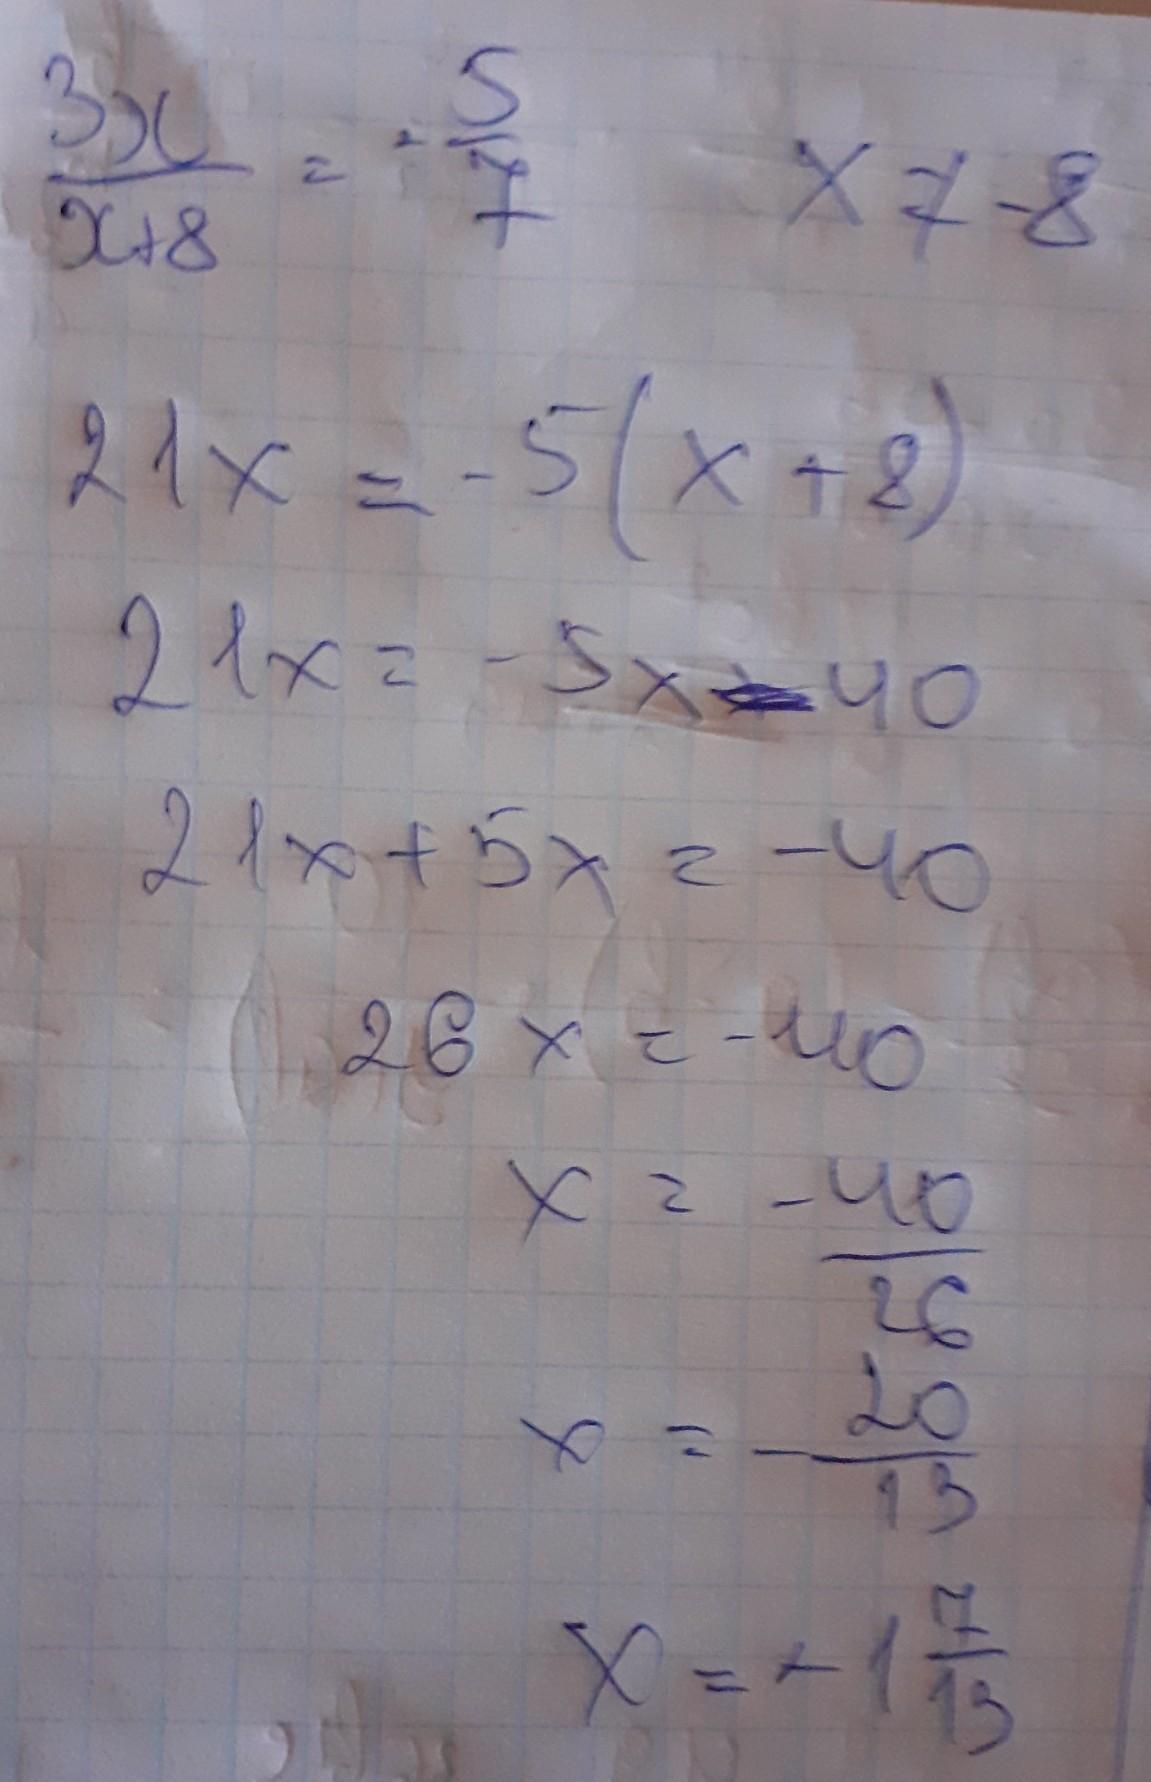 3x/(x+8) = -5/7   x ≠ -8
21x = -5(x+8)
21x = -5x-40
21x+5x = -40
26x = -40
x = -40/26
x = -20/13
x = -1 7/13